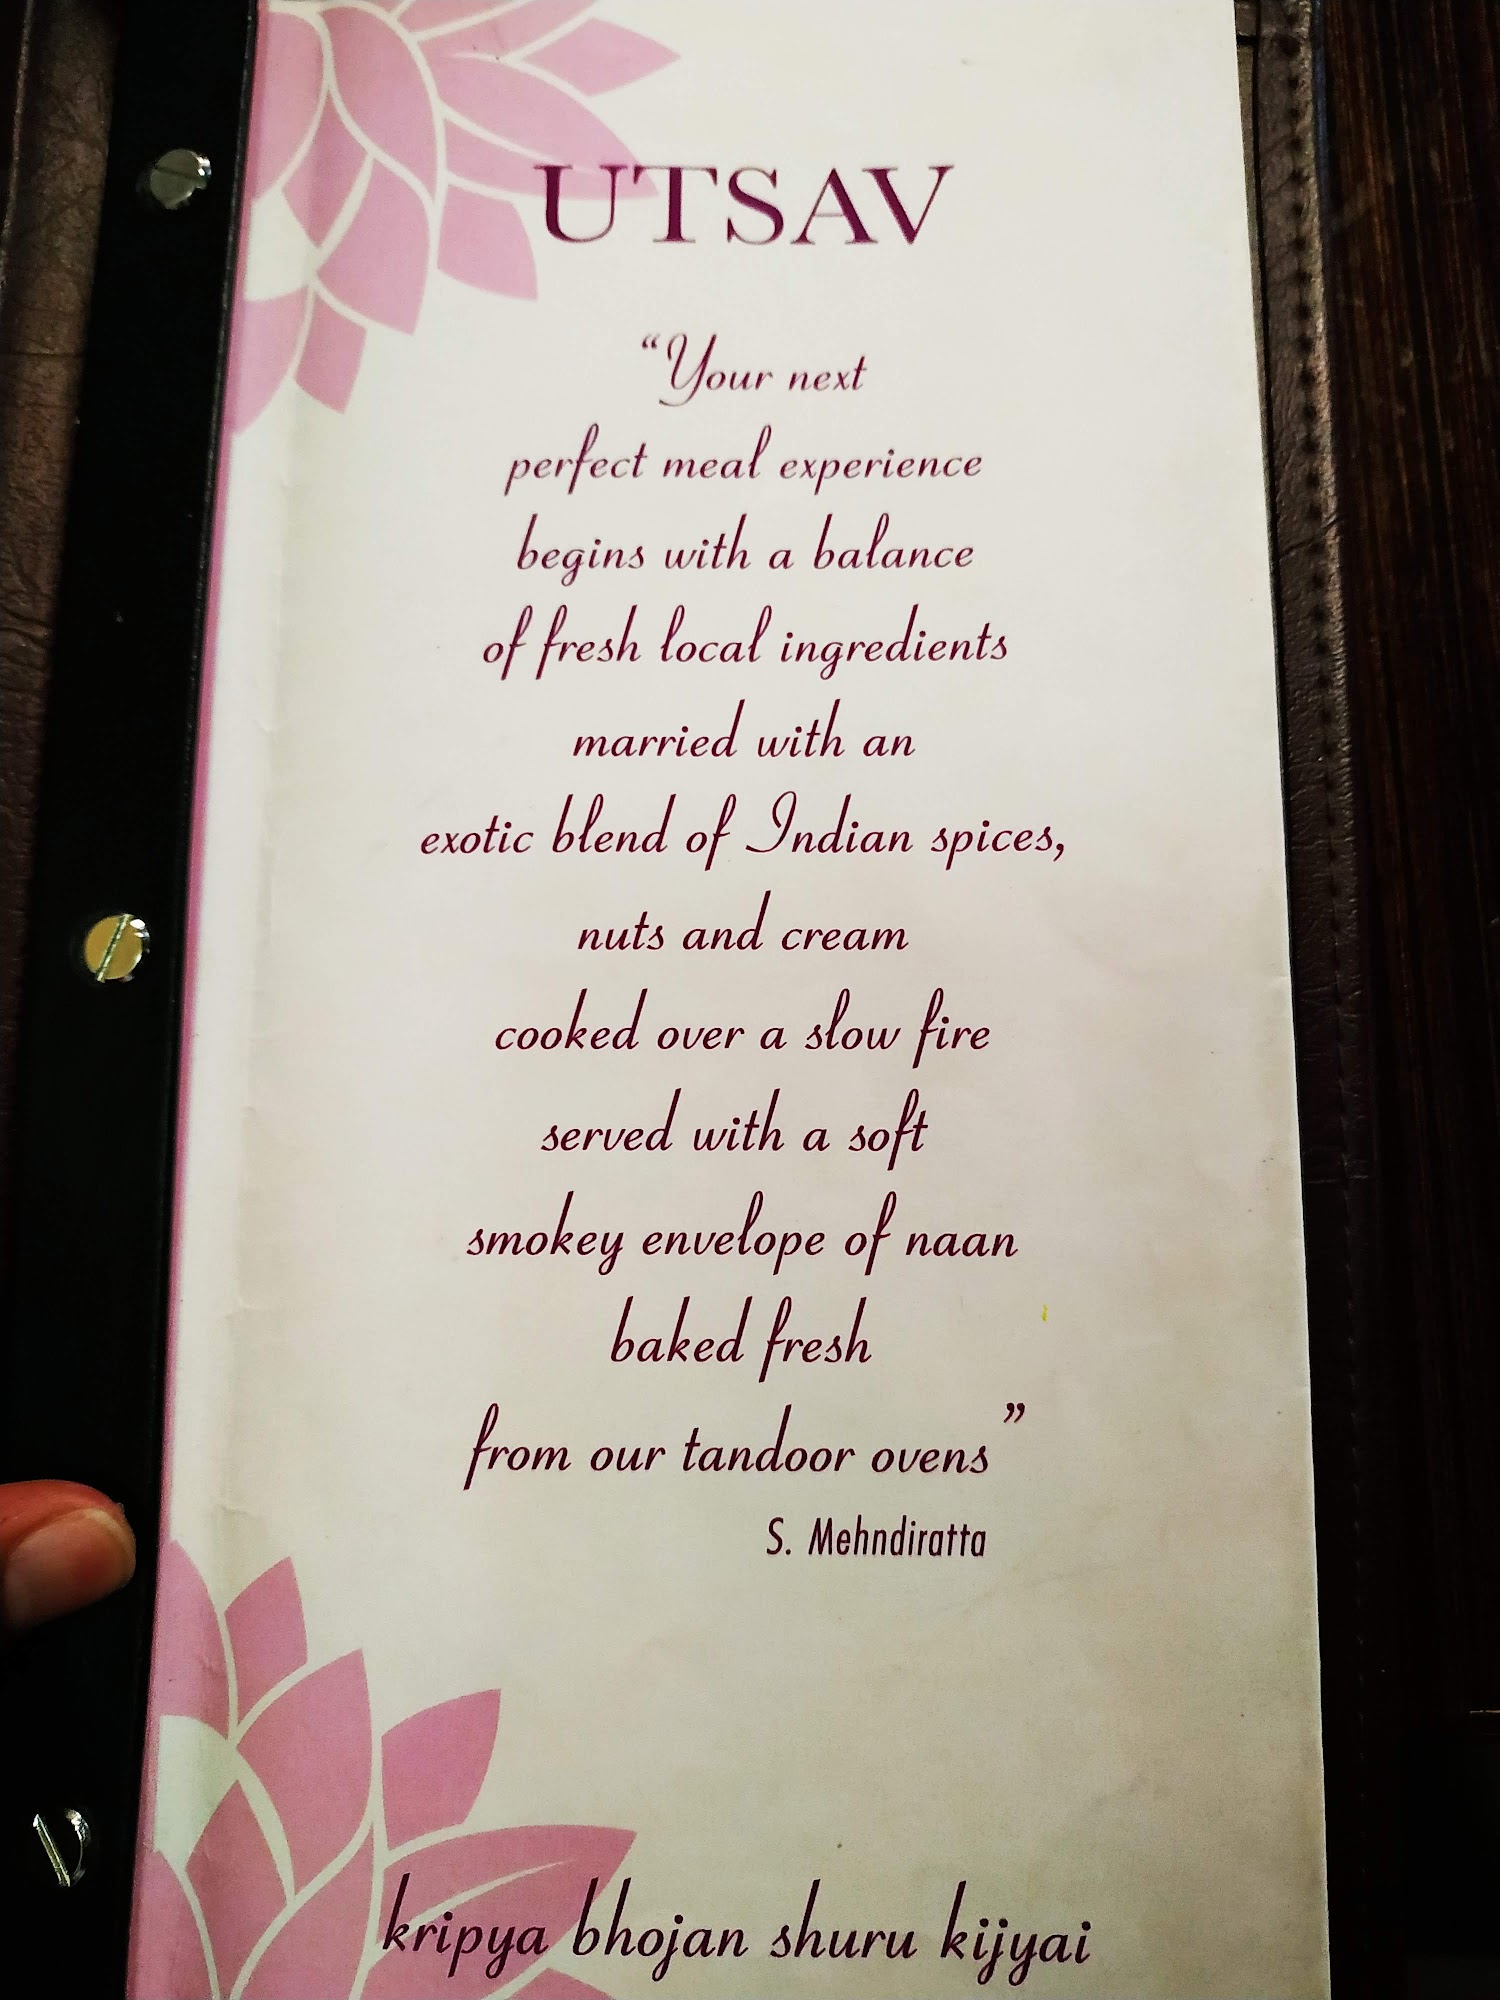 UTSAV
“Your next
perfect meal experience
begins with a balance
of fresh local ingredients
married with an
exotic blend of Indian spices,
nuts and cream
cooked over a slow fire
served with a soft
smokey envelope of naan
baked fresh
from our tandoor ovens”
S. Mehndiratta
kripya bhojan shuru kijyai